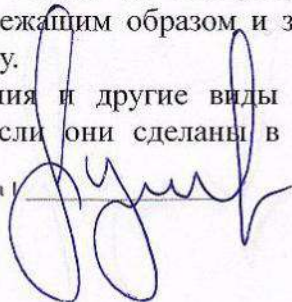 ежащим образом и з
у.
ния и другие виды
сли они сделаны в